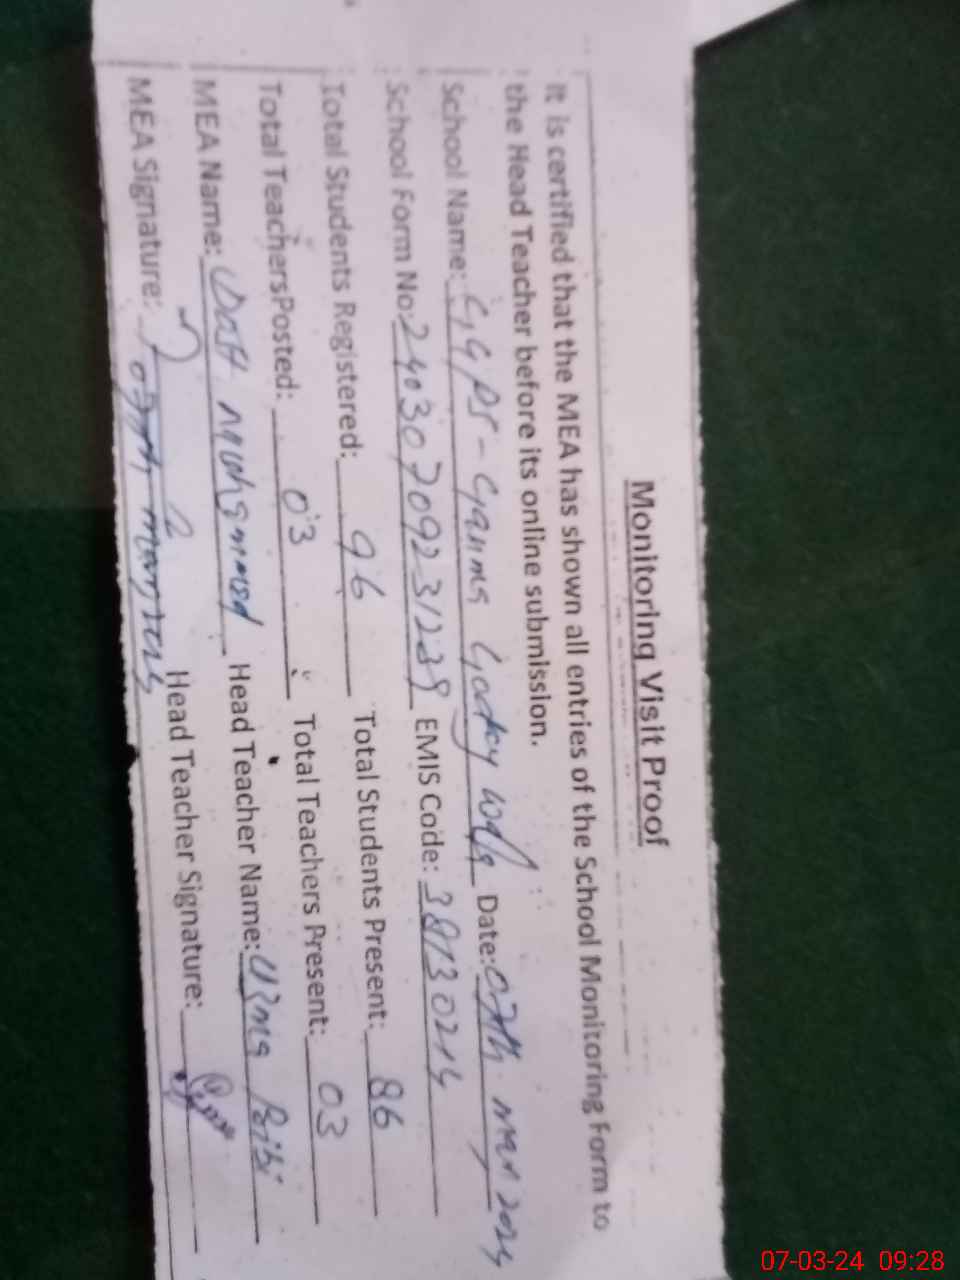 Monitoring Visit Proof
It is certified that the MEA has shown all entries of the School Monitoring Form to
the Head Teacher before its online submission.
School Name: GGPS - Date: 07th mar 2024
School Form No: 240307092331239 EMIS Code: 38130214
Total Students Registered: 96 Total Students Present: 86
Total TeachersPosted: 03 Total Teachers Present: 03
MEA Name: Muhammad Head Teacher Name: Uzma Bibi
MEA Signature: Head Teacher Signature:
07-03-24 09:28